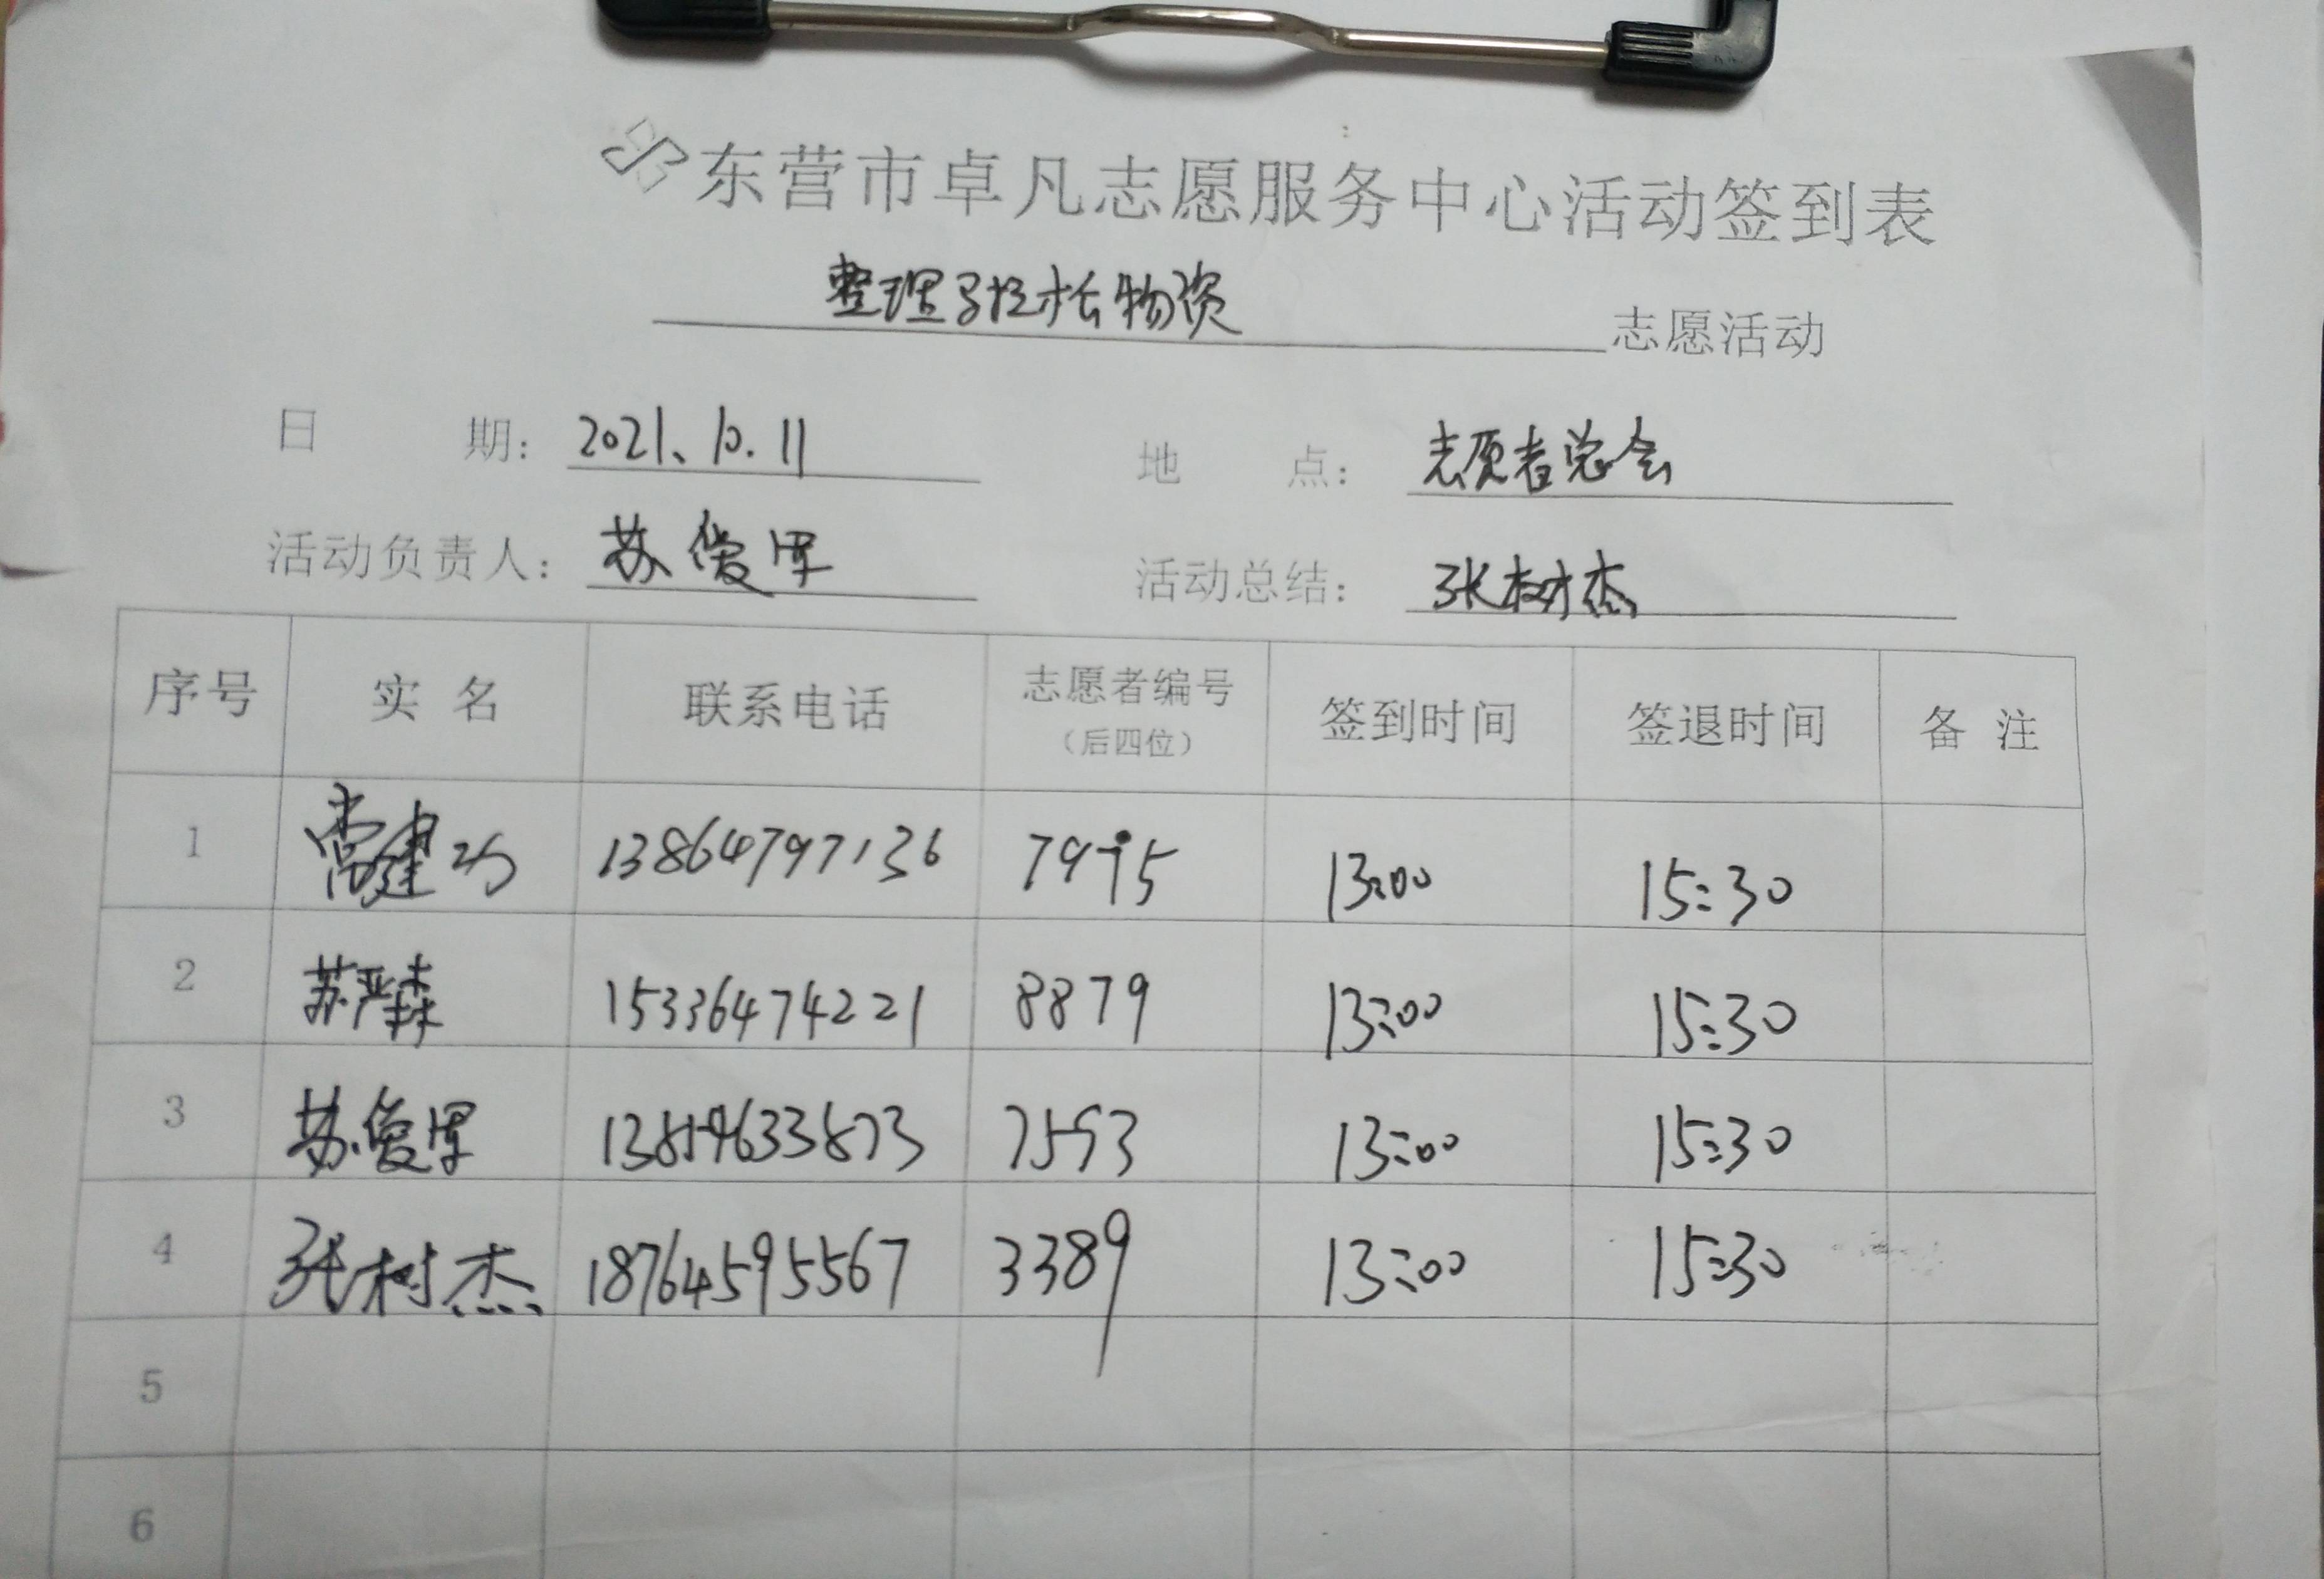 东营市卓凡志愿服务中心活动签到表
整理马拉松物资 志愿活动
日 期: 2021、10.11 地 点: 志愿者总会
活动负责人: 苏俊军 活动总结: 张树杰
序号 实 名 联系电话 志愿者编号 签到时间 签退时间 备 注
(后四位)
1 常建功 13864797136 13:00 15:30
2 苏严森 15336474221 8879 13:00 15:30
3 苏俊军 7593 13:00 15:30
4 张树杰 18764595567 3389 13:00 15:30
5
6